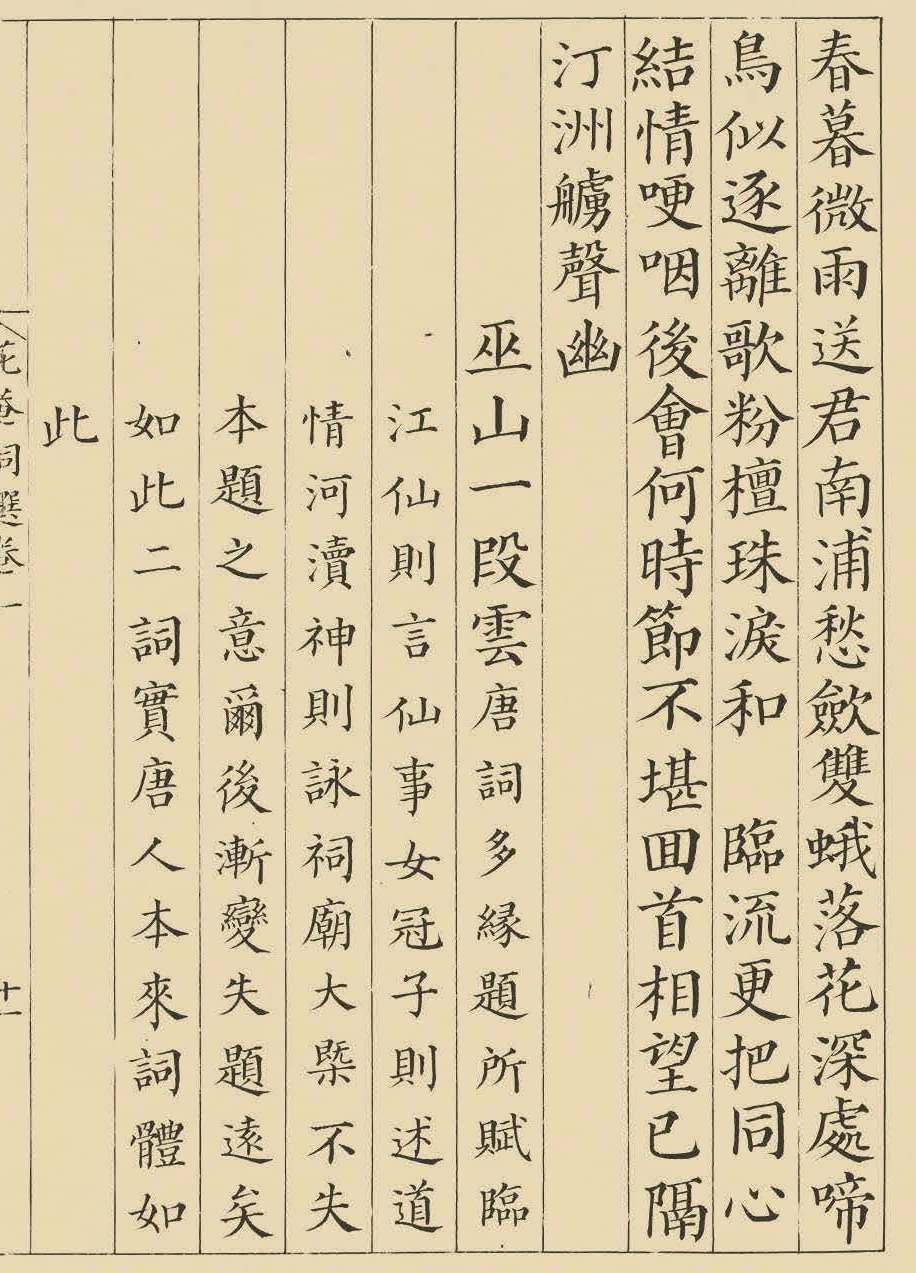 春暮微雨送君南浦愁歛雙蛾落花深處啼
鳥似逐離歌粉檀珠淚和　臨流更把同心
結情哽咽後會何時節不堪回首相望已隔
汀洲艣聲幽
巫山一段雲唐詞多緣題所賦臨
江仙則言仙事女冠子則述道
情河瀆神則詠祠廟大槩不失
本題之意爾後漸變失題遠矣
如此二詞實唐人本來詞體如
此
花菴詞選卷一
十一